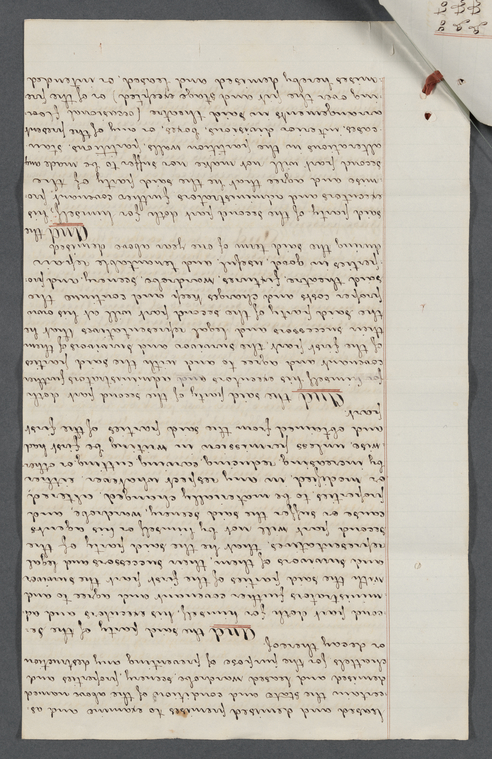 leased and demised premises to examine and as-
certain the state and condition of the above named
demised and leased wardrobe, scenery, properties and
chattels for the purpose of preventing any destruction
or decay thereof.
And the said party of the se-
cond part doth for himself, his executors and ad-
ministrators further covenant and agree to and
with the said parties of the first part the survivor
and survivors of them, their successors and legal
representatives, that he the said party of the
second part will not by himself or his agents
cause or suffer the said scenery, wardrobe, and
properties to be materially changed, altered,
or modified, in any respect whatever, either
by increasing, reducing, coloring, cutting or other-
wise, unless permission in writing be first had
and obtained from the said parties of the first
part.
And the said party of the second part doth
for himself his executors and administrators further
covenant and agree to and with the said parties
of the first part, the survivor and survivors of them
their successors and legal representatives that he
the said party of the second part will at his own
proper costs and charges keep and continue the
said theatre, fixtures, wardrobe, scenery, and pro-
perties in good, useful and tenantable repair
during the said term of one year above demised
And the
said party of the second part doth for himself, his
executors and administrators further covenant pro-
mise and agree that he the said party of the
second part will not make nor suffer to be made any
alterations in the partition walls, partitions, stair-
cases, interior divisions, boxes, or any of the present
arrangements in said theatre (occasional floor-
ing over the pit and stage excepted) or of the pre-
mises hereby demised and leased, or intended